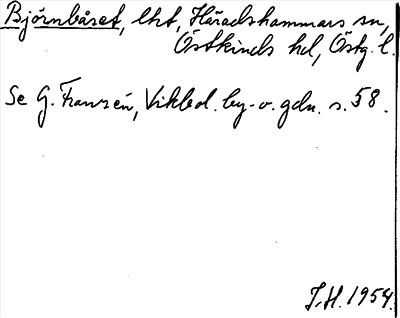 Björnbåset, lht, Häradshammars sn,
Östkinds hd, Östg. l.
Se G. Franzén, Vikbol. by- o. gdn. s. 58.
J.H. 1954.